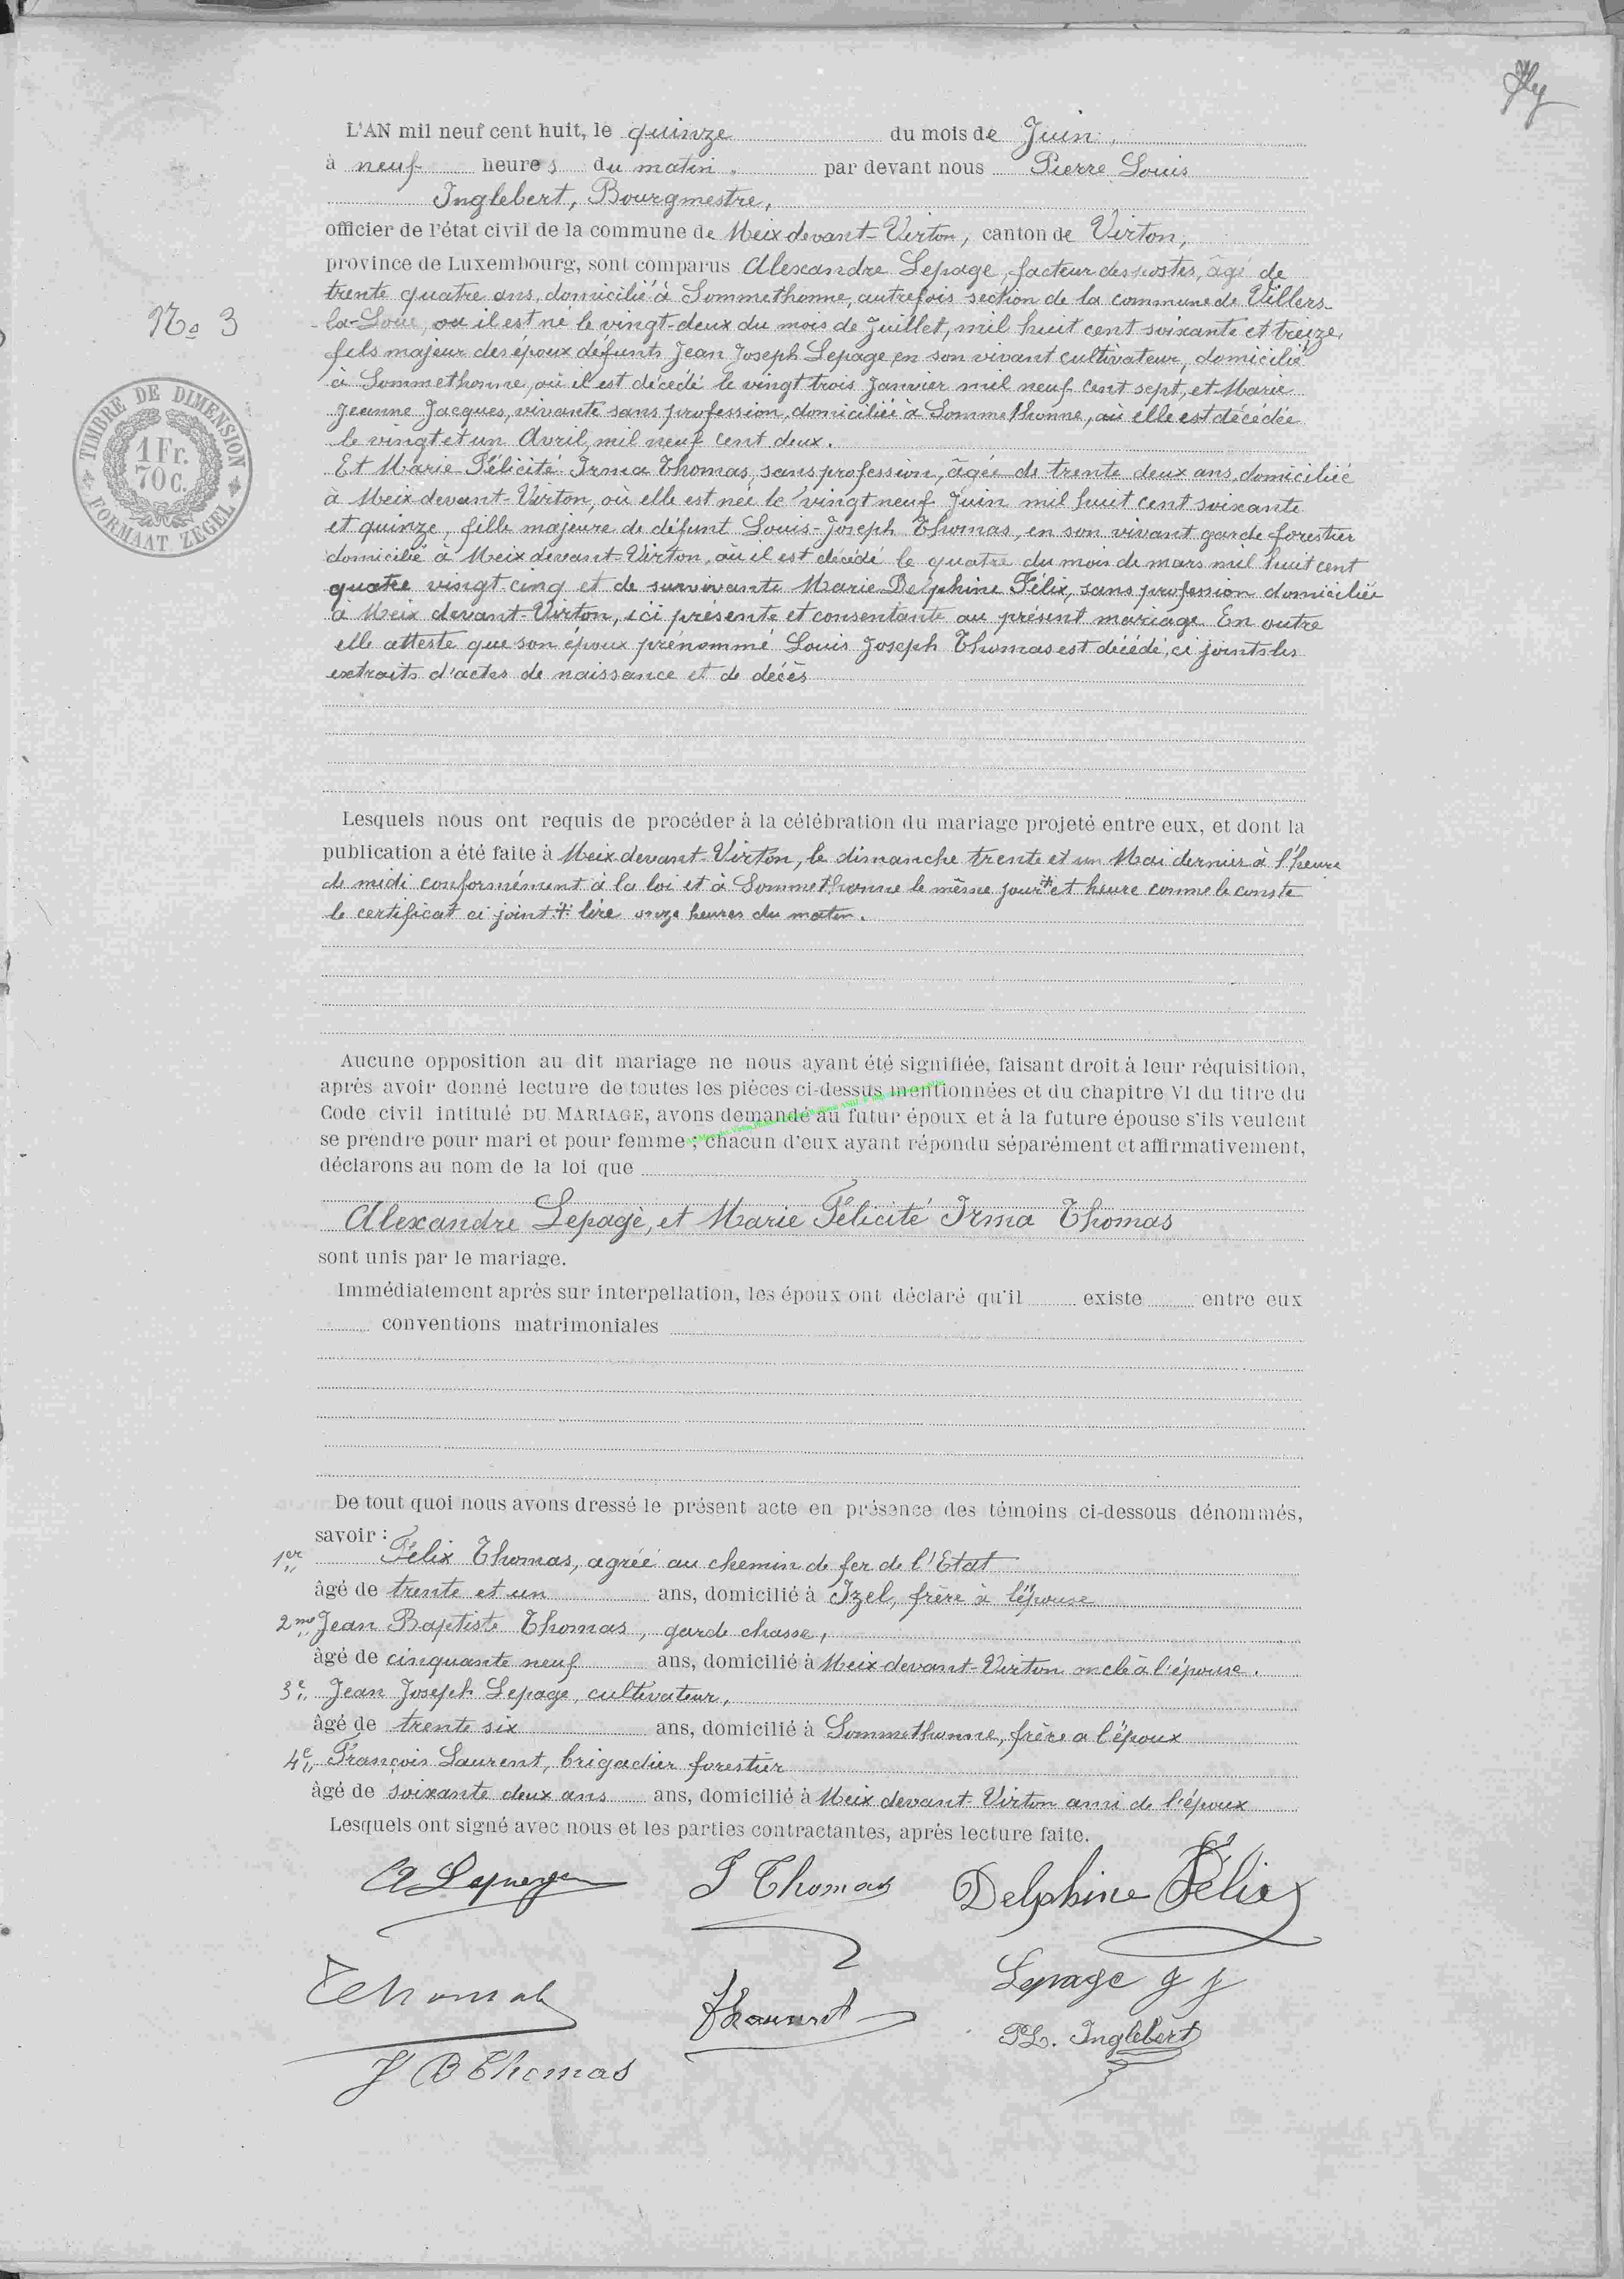 L'AN mil neuf cent huit, le quinze du mois de Juin,
à neuf heures du matin, par devant nous Pierre Louis
Inglebert, Bourgmestre,
officier de l'état civil de la commune de Meix devant-Virton, canton de Virton,
province de Luxembourg, sont comparus Alexandre Lepage, facteur des postes, âgé de
trente quatre ans, domicilié à Sommethonne, autrefois section de la commune de Villers-
No 3
-la-Loue, où il est né le vingt-deux du mois de Juillet, mil huit cent soixante et treize,
fils majeur des époux défunts Jean Joseph Lepage en son vivant cultivateur, domicilié
à Sommethonne, où il est décédé le vingt trois Janvier mil neuf cent sept, et Marie
Jeanne Jacques, vivante sans profession, domiciliée à Sommethonne, où elle est décédée
le vingt et un Avril, mil neuf cent deux.
TIMBRE DE DIMENSION
1 Fr.
70 c.
FORMAAT ZEGEL
Et Marie Félicité Irma Thomas, sans profession, âgée de trente deux ans, domiciliée
à Meix devant-Virton, où elle est née le vingt neuf Juin mil huit cent soixante
et quinze, fille majeure de défunt Louis-Joseph Thomas, en son vivant garde forestier
domicilié à Meix devant-Virton, où il est décédé le quatre du mois de mars mil huit cent
quatre vingt cinq et de survivante Marie Delphine Félix, sans profession domiciliée
à Meix devant-Virton, ici présente et consentante au présent mariage. En outre
elle atteste que son époux prénommé Louis Joseph Thomas est décédé, ci joints les
extraits d'actes de naissance et de décès
Lesquels nous ont requis de procéder à la célébration du mariage projeté entre eux, et dont la
publication a été faite à Meix devant-Virton, le dimanche trente et un Mai dernier à l'heure
de midi conformément à la loi et à Sommethonne le même jour # et heure comme le conste
le certificat ci joint # lire onze heures du matin.
Aucune opposition au dit mariage ne nous ayant été signifiée, faisant droit à leur réquisition,
après avoir donné lecture de toutes les pièces ci-dessus mentionnées et du chapitre VI du titre du
Code civil intitulé DU MARIAGE, avons demandé au futur époux et à la future épouse s'ils veulent
se prendre pour mari et pour femme ; chacun d'eux ayant répondu séparément et affirmativement,
déclarons au nom de la loi que
Alexandre Lepage, et Marie Félicité Irma Thomas
sont unis par le mariage.
Immédiatement après sur interpellation, les époux ont déclaré qu'il existe entre eux
conventions matrimoniales
De tout quoi nous avons dressé le présent acte en présence des témoins ci-dessous dénommés,
savoir :
1er Félix Thomas, agréé au chemin de fer de l'Etat
âgé de trente et un ans, domicilié à Izel, frère à l'épouse
2me Jean Baptiste Thomas, garde chasse,
âgé de cinquante neuf ans, domicilié à Meix devant-Virton oncle à l'épouse.
3e Jean Joseph Lepage, cultivateur,
âgé de trente six ans, domicilié à Sommethonne, frère a l'époux
4e François Laurent, brigadier forestier
âgé de soixante deux ans ans, domicilié à Meix devant-Virton ami de l'époux
Lesquels ont signé avec nous et les parties contractantes, après lecture faite.
A Lepage I Thomas Delphine Félix
Thomas Lepage J J
PL. Inglebert
J B Thomas